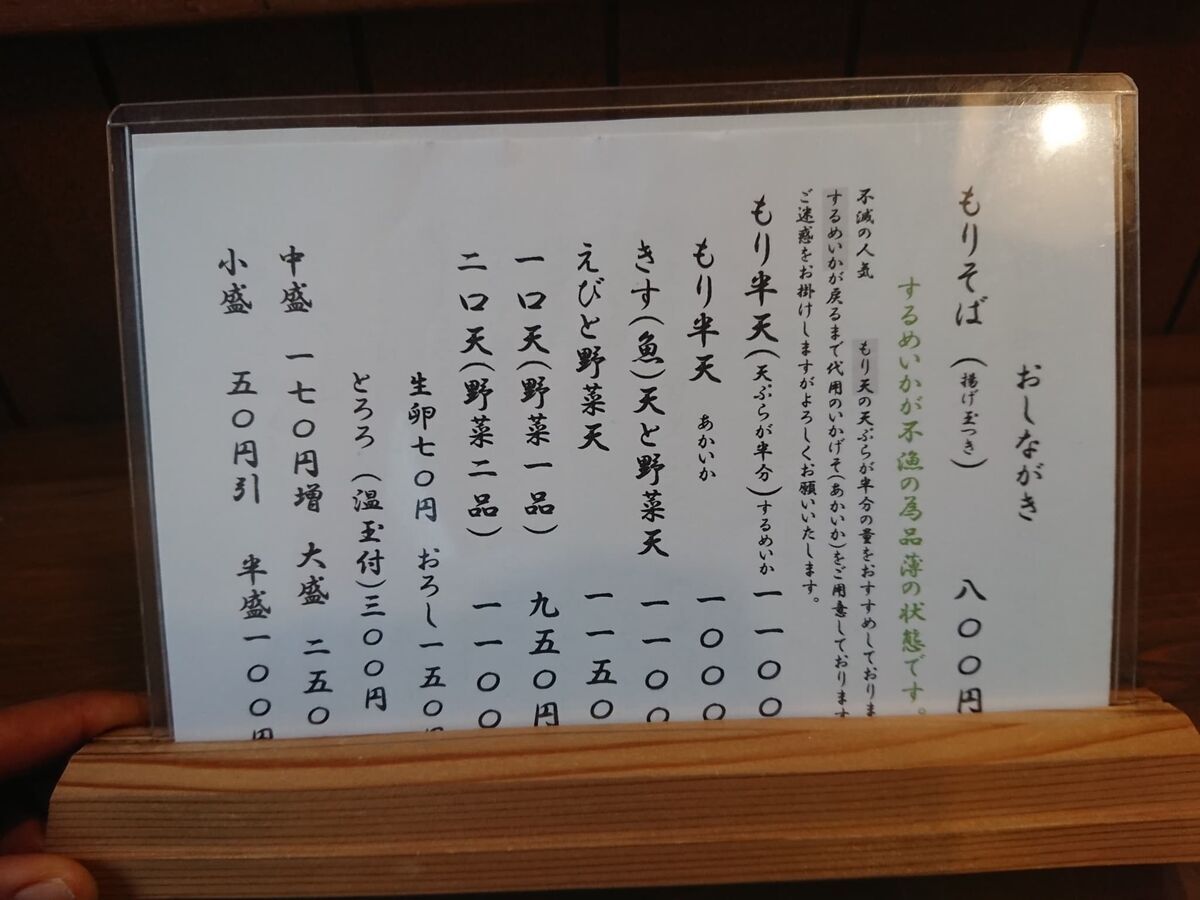 おしながき
もりそば（揚げ玉つき） 八〇〇円
するめいかが不漁の為品薄の状態です。
不滅の人気 もり天の天ぷらが半分の量をおすすめしておりま
するめいかが戻るまで代用のいかげそ（あかいか）をご用意しております
ご迷惑をお掛けしますがよろしくお願いいたします。
もり半天（天ぷらが半分）するめいか 一一〇〇
もり半天 あかいか 一〇〇〇
きす（魚）天と野菜天 一一〇〇
えびと野菜天 一一五〇
一口天（野菜一品） 九五〇円
二口天（野菜二品） 一一〇〇
生卵七〇円 おろし一五〇円
とろろ（温玉付）三〇〇円
中盛 一七〇円増 大盛 二五〇
小盛 五〇円引 半盛一〇〇円